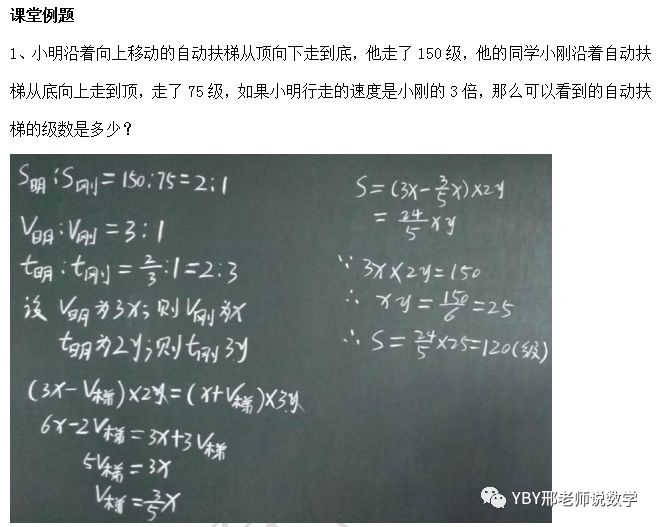 课堂例题
1、小明沿着向上移动的自动扶梯从顶向下走到底，他走了 150 级，他的同学小刚沿着自动扶
梯从底向上走到顶，走了 75 级，如果小明行走的速度是小刚的 3 倍，那么可以看到的自动扶
梯的级数是多少？
S明:S刚=150:75=2:1
V明:V刚=3:1
t明:t刚=2/3:1=2:3
设 V明为3x;则V刚为x
t明为2y;则t刚3y
(3x-V梯)×2y=(x+V梯)×3y
6x-2V梯=3x+3V梯
5V梯=3x
V梯=3/5x
S=(3x-3/5x)×2y
=24/5xy
∵ 3x×2y=150
∴ xy=150/6=25
∴ S=24/5×25=120(级)
YBY邢老师说数学